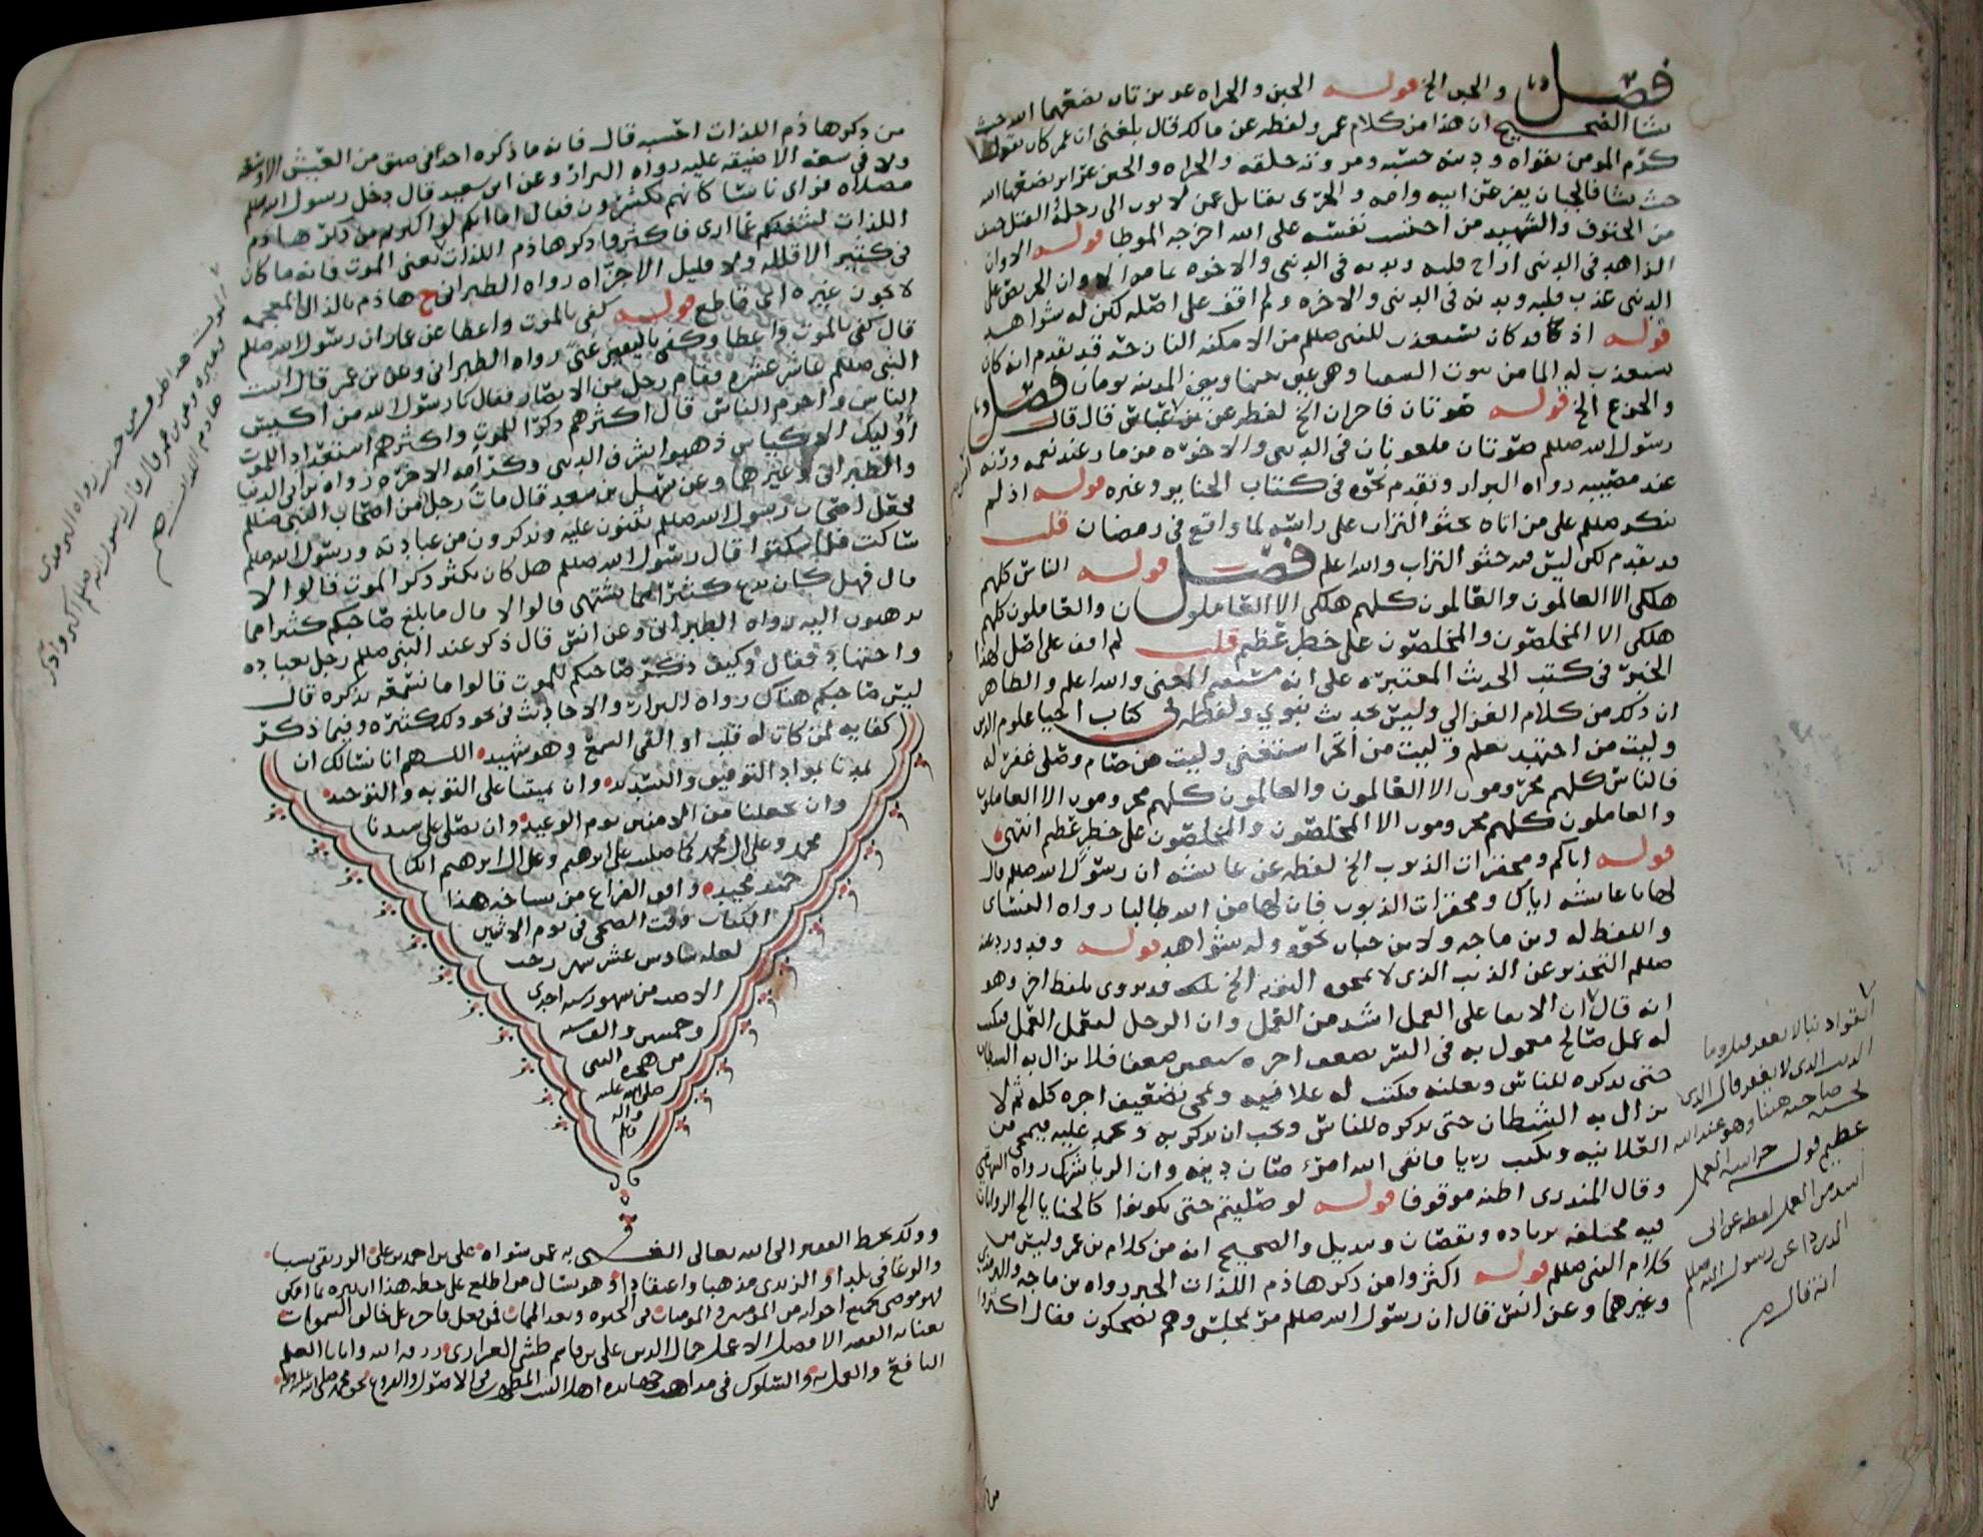 فصل واما والجبن الخ قوله الجبن والجراه غرايز يضعهما الله حيث
يشا الصحيح ان هذا من كلام عمر ولفظه عن مالك قال بلغني ان عمر كان يقول
كرم المومن تقواه ودينه حسبه ومروته خلقه والجراه والجبن غرايز يضعها الله
حيث يشا فالجبان يفر عن ابيه وامه والجرى يقاتل عمن لا يوب الى رحله والقتل حتف
من الحتوف والشهيد من احتسب نفسه على الله اخرجه الموطا قوله الا وان
الزاهد في الدنيا اراح قلبه وبدنه في الدنيا والاخره الا وان الحريص على
الدنيا عذب قلبه وبدنه في الدنيا والاخره ولم اقف على اصله لكن له شواهد
قوله اذ كان يستعذب للنبي صللم من الامكنه قد تقدم انه كان
يستعذب له الما من بيوت السقيا وهي عين بينها وبين المدينه يومان فصل
والجزع الخ قوله صوتان فاجران الخ لفظه عن بن عباس قال قال
رسول الله صللم صوتان ملعونان في الدنيا والاخره مزمار عند نعمه ورنه
عند مصيبه رواه البزار وتقدم نحوه في كتاب الجنايز وغيره قوله اذ لم
ينكر صللم على من اتاه يحثو التراب على راسه لما واقع في رمضان قلت
قد تقدم لكن ليس فيه حثو التراب والله اعلم فصل قوله الناس كلهم
هلكى الا العالمون والعالمون كلهم هلكى الا العاملون والعاملون كلهم
هلكى الا المخلصون والمخلصون على خطر عظيم قلت لم اقف على اصل لهذا
الخبر في كتب الحديث المعتبره على انه مستقيم المعنى والله اعلم والظاهر
ان ذلك من كلام الغزالي وليس بحديث نبوي ولفظه في كتاب احيا علوم الدين
وليت من اجتهد تعلم وليت من اتجرا استغنى وليت من صام وصلى غفر له
فالناس كلهم محرومون الا العالمون والعالمون كلهم محرومون الا العاملون
والعاملون كلهم محرومون الا المخلصون والمخلصون على خطر عظيم انتهى
قوله اياكم ومحقرات الذنوب الخ لفظه عن عايشه ان رسول الله صللم قال
لها يا عايشه اياك ومحقرات الذنوب فان لها من الله طالبا رواه النساى
واللفظ له وبن ماجه ولابن حبان نحوه وله شواهد قوله وقد ورد عنه
صللم التحذير عن الذنب الذي لا تمحوه التوبه الخ قد روى بلفظ اخر وهو
انه قال ان الابقا على العمل اشد من العمل وان الرجل ليعمل العمل فيكتب
له عمل صالح معمول به في السر يضعف اجره سبعين ضعفا فلا يزال به الشيطان
حتى يذكره للناس ويعلنه فيكتب له علانيه ويمحى تضعيف اجره كله ثم لا
يزال به الشيطان حتى يذكره للناس ويحب ان يذكر به ويحمد عليه فيمحى من
العلانيه ويكتب ريا فاتقى الله امرؤ صان دينه وان الريا شرك رواه البيهقي
وقال المنذرى اظنه موقوفا قوله لو صليتم حتى تكونوا كالحنايا الخ الروايات
فيه مختلفه بزياده ونقصان وتبديل والصحيح انه من كلام بن عمر وليس من
كلام النبي صللم قوله اكثروا من ذكر هاذم اللذات الخبر رواه بن ماجه والترمذي
وغيرهما وعن انس قال ان رسول الله صللم مر بمجلس وهم يضحكون فقال اكثروا
من ذكر هاذم اللذات احسبه قال فانه ما ذكره احد في ضيق من العيش الا وسعه
ولا في سعه الا ضيقه عليه رواه البزار وعن ابي سعيد قال دخل رسول الله صللم
مصلاه فراى ناسا كانهم يكثرون فقال اما انكم لو اكثرتم من ذكر هاذم
اللذات لشغلكم عما ارى فاكثروا ذكر هاذم اللذات يعني الموت فانه ما كان
في كثير الا قلله ولا قليل الا جزاه رواه الطبراني ح هاذم بالذال المعجمه
لا يجوز غيره اى قاطع قوله كفى بالموت واعظا عن عمار ان رسول الله صللم
قال كفى بالموت واعظا وكفى باليقين غنى رواه الطبراني وعن بن عمر قال اتيت
النبي صللم عاشر عشره فقام رجل من الانصار فقال يا رسول الله من اكيس
الناس واحزم الناس قال اكثرهم ذكرا للموت واكثرهم استعدادا للموت
اوليك الاكياس ذهبوا بشرف الدنيا وكرامه الاخره رواه بن ابي الدنيا
والطبراني وغيرهما وعن سهل بن سعد قال مات رجل من اصحاب النبي صللم
فجعل اصحاب رسول الله صللم يثنون عليه ويذكرون من عبادته ورسول الله صللم
ساكت فلما سكتوا قال رسول الله صللم هل كان يكثر ذكر الموت قالوا لا
قال فهل كان يدع كثيرا مما يشتهى قالوا لا قال ما بلغ صاحبكم كثيرا مما
تذهبون اليه رواه الطبراني وعن انس قال ذكر عند النبي صللم رجل بعباده
واجتهاد فقال وكيف ذكر صاحبكم للموت قالوا ما نسمعه يذكره قال
ليس صاحبكم هناك رواه البزار والاحاديث في نحو ذلك كثيره وفيما ذكر
كفايه لمن كان له قلب او القى السمع وهو شهيد اللهم انا نسالك ان
تمدنا بمواد التوفيق والتسديد وان تميتنا على التوبه والتوحيد
وان تجعلنا من الامنين يوم الوعيد وان تصلى على سيدنا
محمد وعلى ال محمد كما صليت على ابرهيم وعلى ال ابرهيم انك
حميد مجيد وافق الفراغ من نساخه هذا
الكتاب وقت الضحى في يوم الاثنين
لعله سادس عشر شهر رجب
الاصب من شهور سنه احدى
وخمسين والف سنه
من هجره النبي
صلى الله عليه
واله
وسلم
وذلك بخط الفقير الى الله تعالى الغني به عمن سواه علي بن احمد بن علي نسبا
بلدا والزيدى مذهبا واعتقادا وهو يسال من اطلع على خطه هذا
النافع والعمل به والسلوك في مذاهب اهل البيت المطهرين في الاصول والفروع بحق محمد صلى الله عليه واله